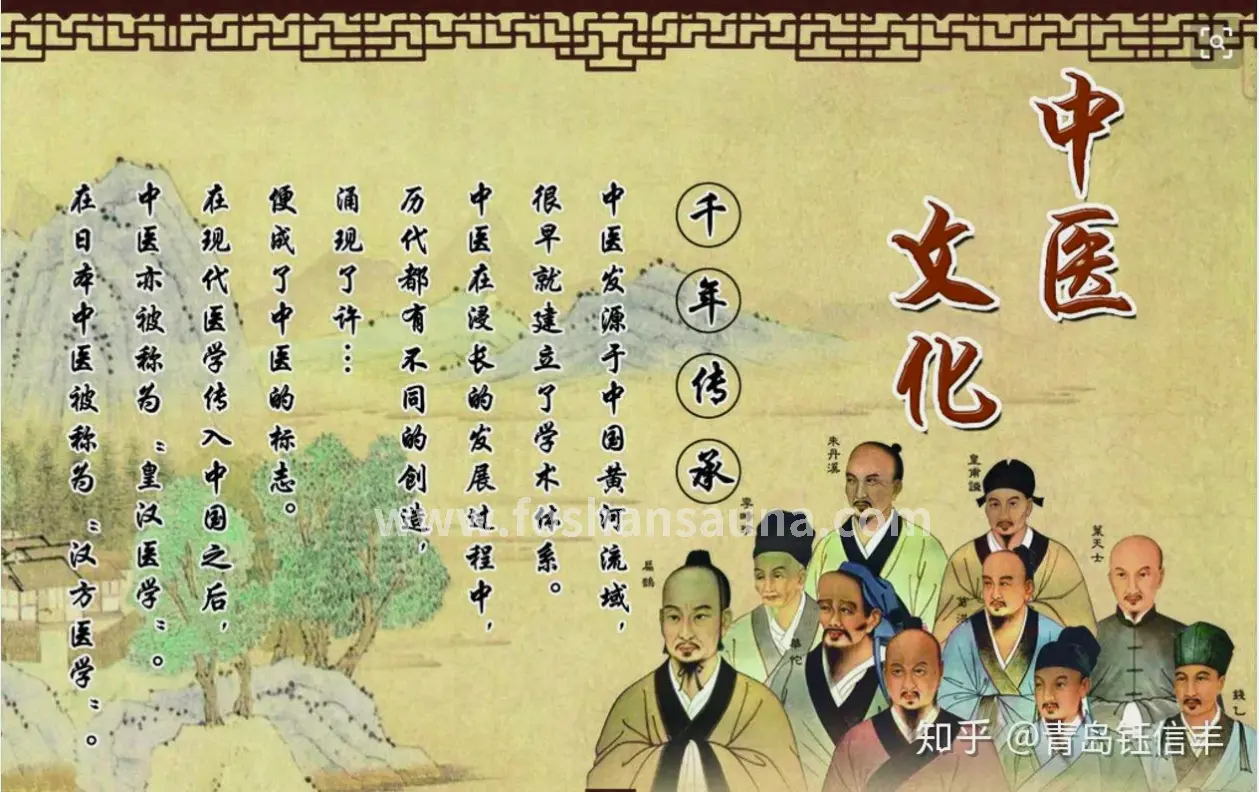 中医
文化
千年传承
中医发源于中国黄河流域，
很早就建立了学术体系。
中医在浸长的发展过程中，
历代都有不同的创造，
涌现了许…
便成了中医的标志。
在现代医学传入中国之后，
中医亦被称为“皇汉医学”。
在日本中医被称为“汉方医学”。
朱丹溪
皇甫謐
葉天士
扁鵲
華佗
葛洪
錢乙
www.foshansauna.com
知乎 @青岛钰信丰